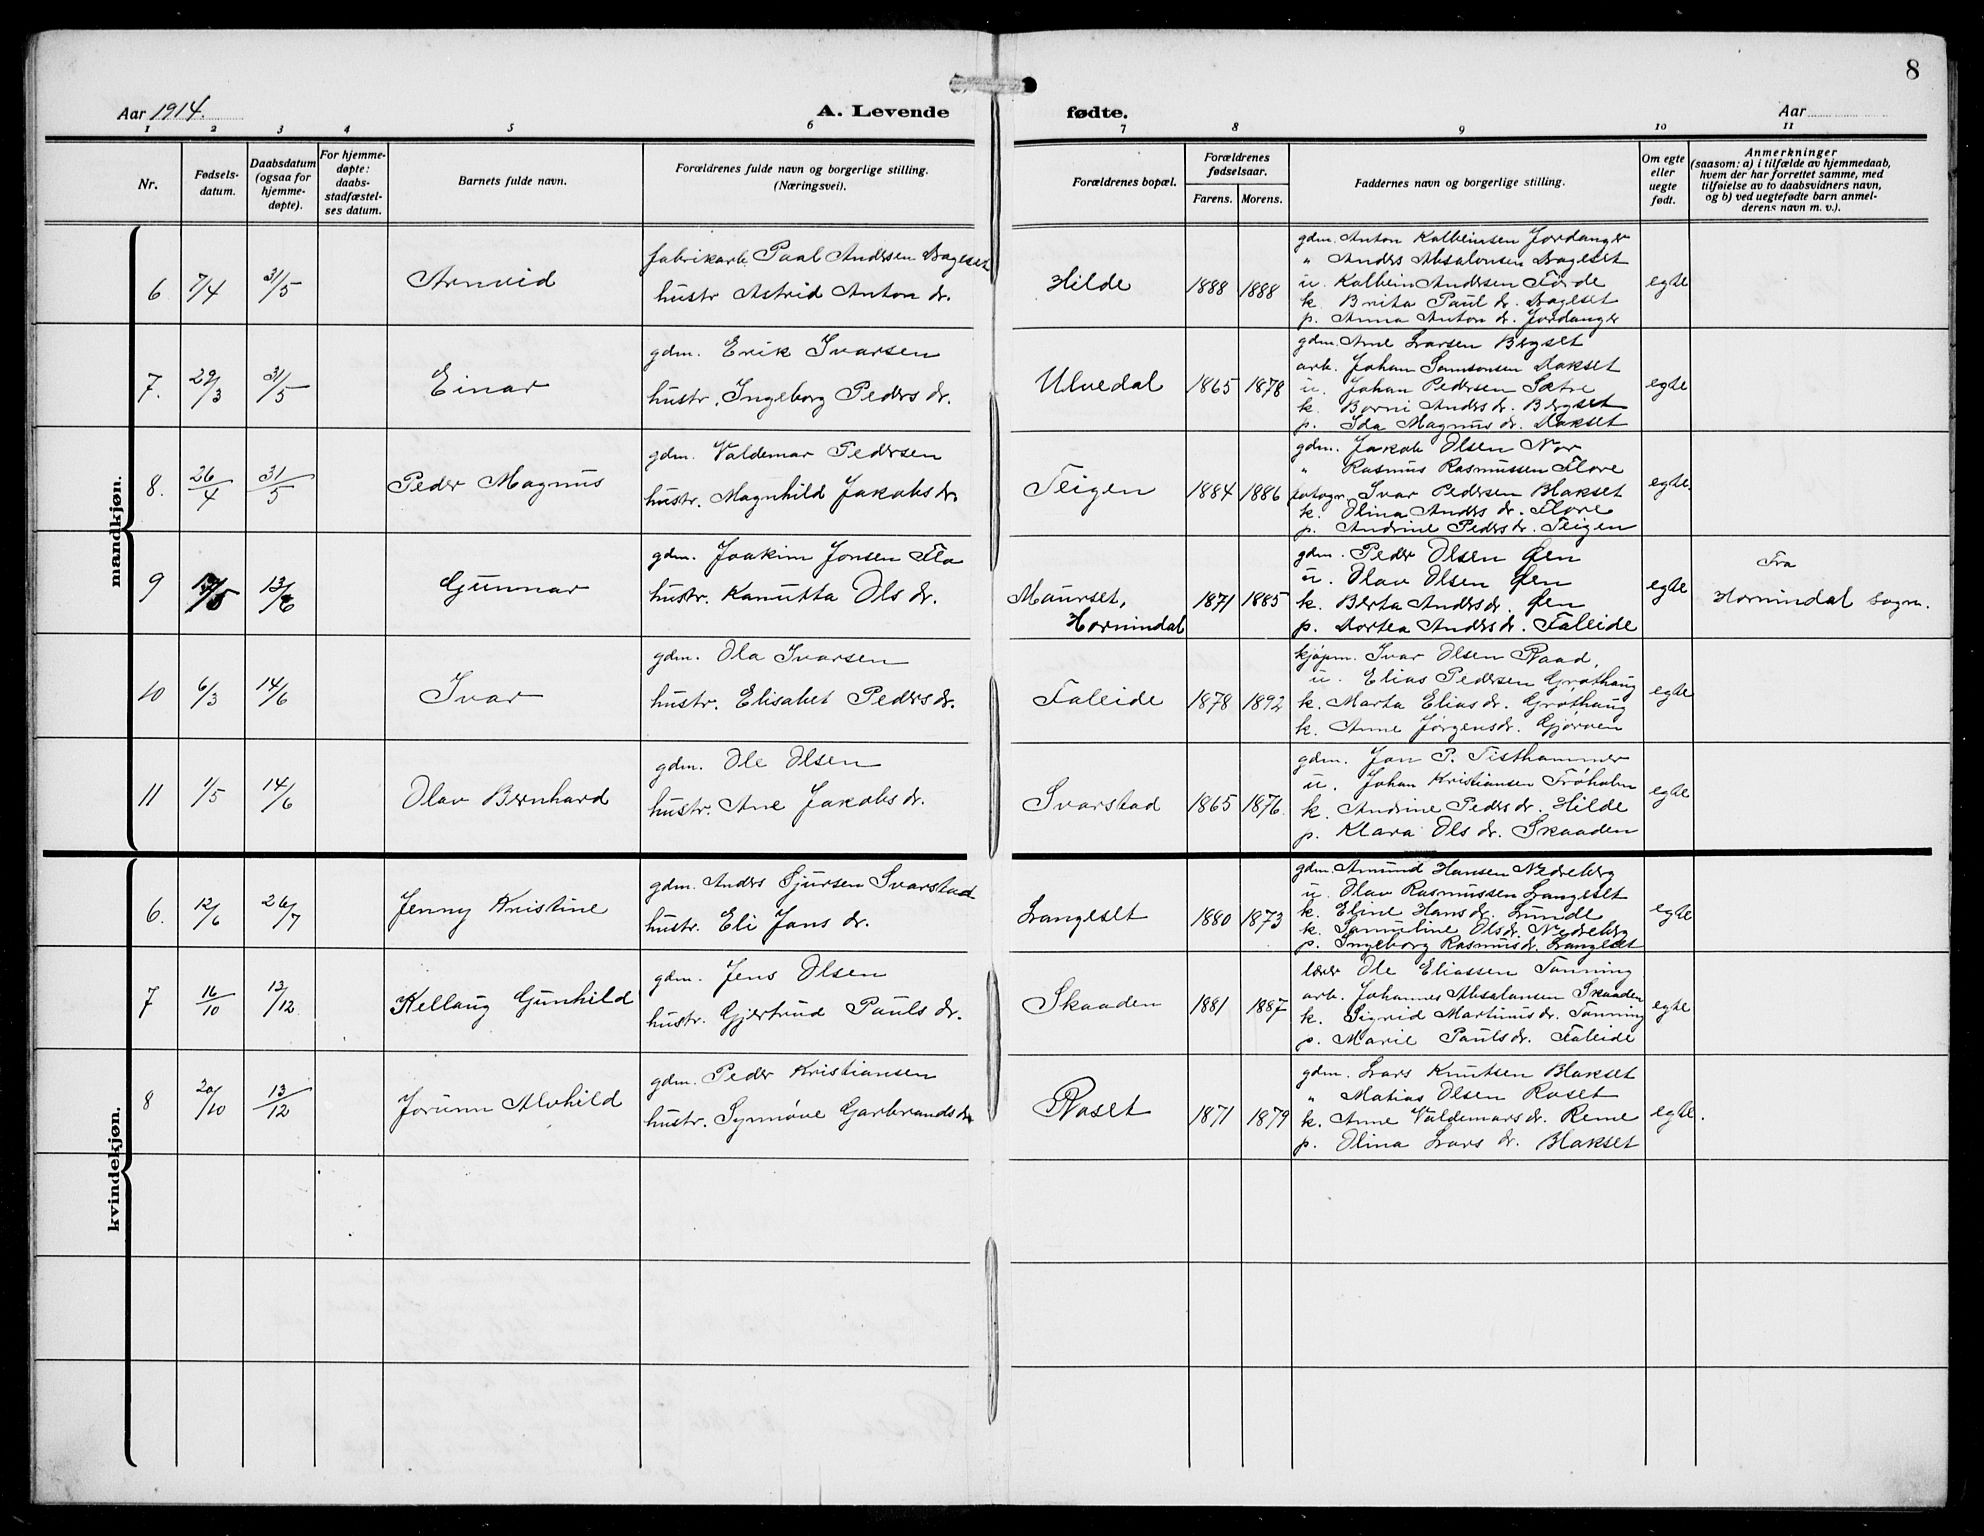 8
Aar 1914.
A. Levende fødte.
Aar
1 2 3 4 5 6 7 8 9 10 11
Nr.
Fødsels-
datum.
Daabsdatum
(ogsaa for
hjemme-
døpte).
For hjemme-
døpte:
daabs-
stadfæstel-
ses datum.
Barnets fulde navn.
Forældrenes fulde navn og borgerlige stilling.
(Næringsvei).
Forældrenes bopæl.
Forældrenes
fødselsaar.
Farens. Morens.
Faddernes navn og borgerlige stilling.
Om egte
eller
uegte
født.
Anmerkninger
(saasom: a) i tilfælde av hjemmedaab,
hvem der har forrettet samme, med
tilføielse av to daabsvidners navn,
og b) ved uegtefødte barn anmel-
derens navn m. v.).
mandkjøn.
6 7/4 31/5 Arnvid
fabrikarb. Paal Andersen Dageset
hustr Astrid Anton dr.
Hilde 1888 1888
gdm. Anton Kolbeinsen Jordanger
" Anders Absalonsen Dageset
u. Kolbein Andersen Førde
k. Brita Paul dr. Dageset
p. Anna Anton dr. Jordanger
egte
7. 29/3 31/5 Einar
gdm. Erik Ivarsen
hustr. Ingeborg Peders dr.
Ulvedal 1865 1878
gdm. Arne Larsen Bergset
arb. Johan Samsonsen Dokset
u. Johan Pedersen Sætre
k. Borni Anders dr. Bergset
p. Ida Magnus dr. Dokset
egte
8. 26/4 31/5 Peder Magnus
gdm. Valdemar Pedersen
hustr. Magnhild Jakobs dr.
Teigen 1884 1886
gdm. Jakob Olsen Nor
" Rasmus Rasmussen Flore
fotogr. Ivar Pedersen Blakset
k. Olina Anders dr. Flore
p. Andrine Peders dr. Teigen
egte.
9 /5 13/6 Gunnar
gdm. Joakim Jonsen Flo
hustr. Kanutta Ols dr.
Maurset,
Hornindal
1871 1885
gdm. Peder Olsen Øen
u. Olav Olsen Øen
k. Berta Anders dr. Øen
p. Dortea Anders dr. Faleide
egte
Fra
Hornindal sogn.
10 6/3 14/6 Ivar
gdm. Ola Ivarsen
hustr. Elisabet Peders dr.
Faleide 1878 1892
kjøpm. Ivar Olsen Raad,
u. Elias Pedersen Grøthaug
k. Marta Elias dr. Grøthaug
k. Anne Jørgens dr. Gjørven
egte
11 1/5 14/6 Olav Bernhard
gdm. Ole Olsen
hustr. Ane Jakobs dr.
Svarstad 1865 1876.
gdm. Jon P. Tisthammer
u. Johan Kristiansen Frøholm
k. Andrine Peders dr. Hilde
p. Klara Ols dr. Skaaden
egte
kvindekjøn.
6. 12/6 26/7 Jenny Kristine
gdm. Anders Sjursen Svarstad
hustr. Eli Jans dr.
Langeset 1880 1873
gdm. Amund Hansen Nedreberg
u. Olav Rasmussen Langeset
k. Eline Hans dr. Lunde
k. Samuline Ols dr. Nedreberg
p. Ingeborg Rasmus dr. Langeset
egte
7 16/10 13/12 Kellaug Gunhild
gdm. Jens Olsen
hustr. Gjertrud Pauls dr.
Skaaden 1881 1887
lærer Ole Eliassen Tonning
arb. Johannes Absalonsen Skaaden
k. Sigrid Martinus dr. Tonning
p. Marie Pauls dr. Faleide
egte
8 20/10 13/12 Jorunn Alvhild
gdm. Peder Kristiansen
hustr. Synnøve Garbrands dr.
Roset 1871 1879
gdm. Lars Knutsen Blakset
" Matias Olsen Roset
k. Anne Valdemars dr. Reme
p. Olina Lars dr. Blakset
egte.